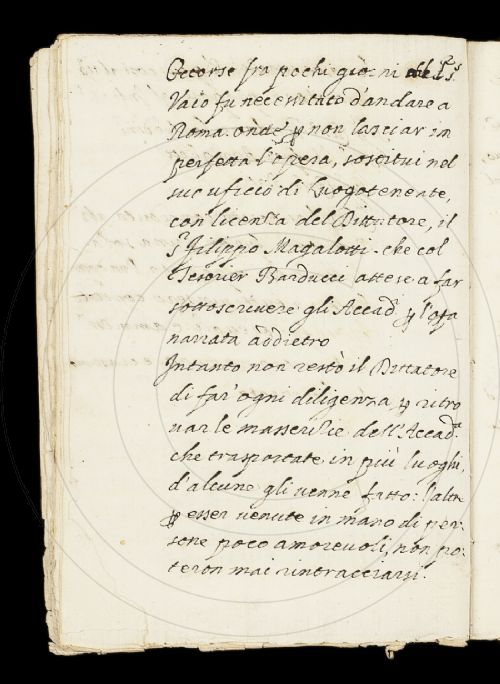 Occorse fra pochi giorni che il Sr
Vaio fu necessitato d'andare a
Roma. onde ꝑ non lasciar im
perfetta l'opera, sostitui nel
suo ufficio di Luogotenente,
con licenza del Dittatore, il
Sr Filippo Magalotti. che col
Tesorier Barducci attese a far
sottoscrivere gli Accadi ꝑ l'
narrata addietro
Intanto non restò il Dittatore
di far' ogni diligenza ꝑ ritro
uar le masserizie dell'Accada
che trasportate in più luoghi,
d'alcune gli uenne fatto: l'altre
ꝑ esser uenute in mano di per:
sone poco amoreuoli, non po:
teron mai rintracciarsi.